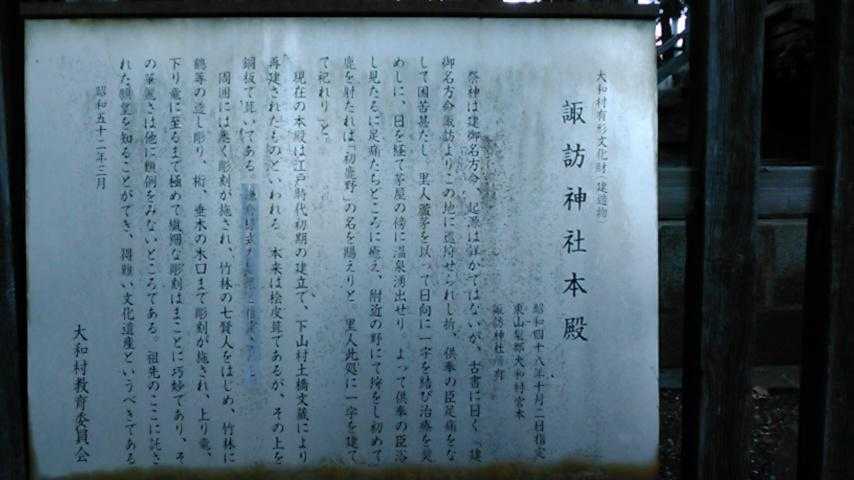 大和村有形文化財（建造物）
諏訪神社本殿
昭和四十八年十月二日指定
東山梨郡大和村宮本
諏訪神社
祭神は建御名方命、起源は詳かではないが、古書に曰く「建
御名方命諏訪よりこの地に巡狩せられし折、供奉の臣足痛をな
して困苦甚だし、里人篭茅を以って日向に一宇を結び治療を奨
めしに、日を経て茅屋の傍に温泉湧出せり。よって供奉の臣浴
し見たるに足痛たちどころに癒え、附近の野にて狩をし初めて
鹿を射たれば「初鹿野」の名を賜えりと、里人此処に一宇を建て
て祀れり」と。
現在の本殿は江戸時代初期の建立で、下山村土橋文蔵により
再建されたものといわれる。本来は桧皮葺であるが、その上を
銅板で葺いてある。
周囲には悉く彫刻が施され、竹林の七賢人をはじめ、竹林に
鶴等の透し彫り、桁、垂木の木口まで彫刻が施され、上り竜、
下り竜に至るまで極めて繊細な彫刻はまことに巧妙であり、そ
の華麗さは他に類例をみないところである。祖先のここに託さ
れた願望を知ることができ、得難い文化遺産というべきである
昭和五十二年三月
大和村教育委員会